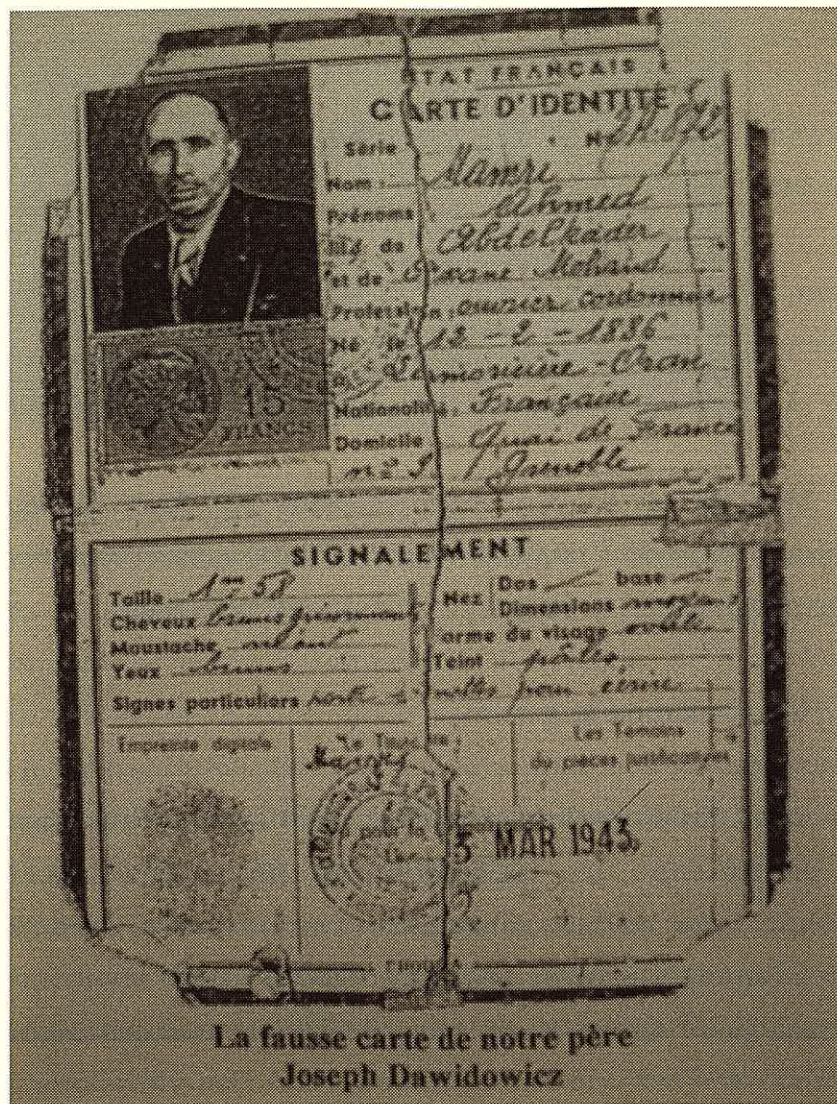 ÉTAT FRANÇAIS
CARTE D'IDENTITÉ
Série N°
Nom :
Prénoms : Ahmed
fils de Abdelkader
et de Mohand
Profession : ouvrier cordonnier
Né le 12 - 2 - 1886
à Lamoricière - Oran
Nationalité : Française
Domicile Quai de France
n° Grenoble
15
FRANCS
SIGNALEMENT
Taille 1m 58
Cheveux bruns grisonnants
Moustache néant
Yeux bruns
Nez Dos base
Dimensions
Forme du visage ovale
Teint
Signes particuliers pour écrire
Empreinte digitale
Le Titulaire :
Les Témoins
ou pièces justificatives
MAR 1943
La fausse carte de notre père
Joseph Dawidowicz